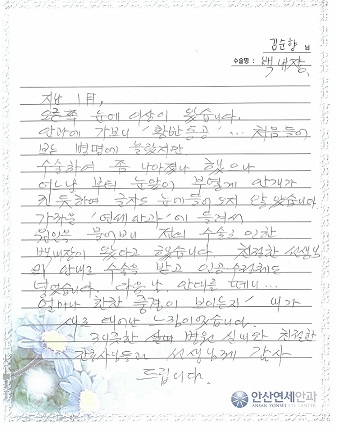 김순향 님
수술명 : 백내장.
지난 1月,
오른쪽 눈에 이상이 왔습니다.
안과에 가보니 "황반 원공"... 처음 들어
보는 병명에 놀랐지만
수술하여 좀 나아졌나 했으나
어느날 부터 눈앞이 부옇게 안개가
낀 듯하여 글자도 눈에 들어 오지 않았습니다
가까운 "연세안과"에 들려서
원인을 물어보니 전의 수술로 인한
백내장이 왔다고 했습니다. 친절한 선생님
의 상대로 수술을 받고 인공수정체도
넣었습니다. 다음날, 안대를 떼니...
얼마나 환한 풍경이 보이든지 내가
새로 태어난 느낌이었습니다.
병원 식구와 친절한
간호사님들과 선생님께 감사
드립니다.
안산연세안과
ANSAN YONSEI EYE CENTER